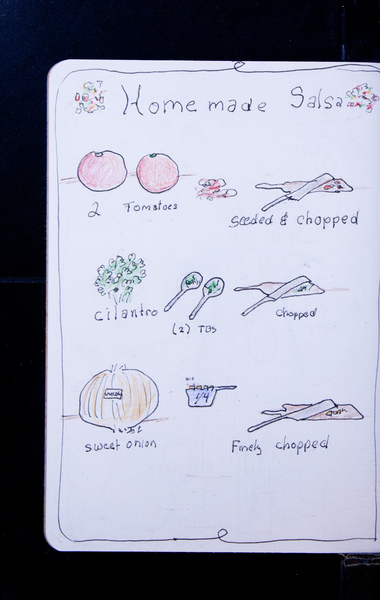 Home made Salsa
2 Tomatoes
Seeded & chopped
cilantro
(2) TBS
chopped
1/4
sweet onion
Finely chopped